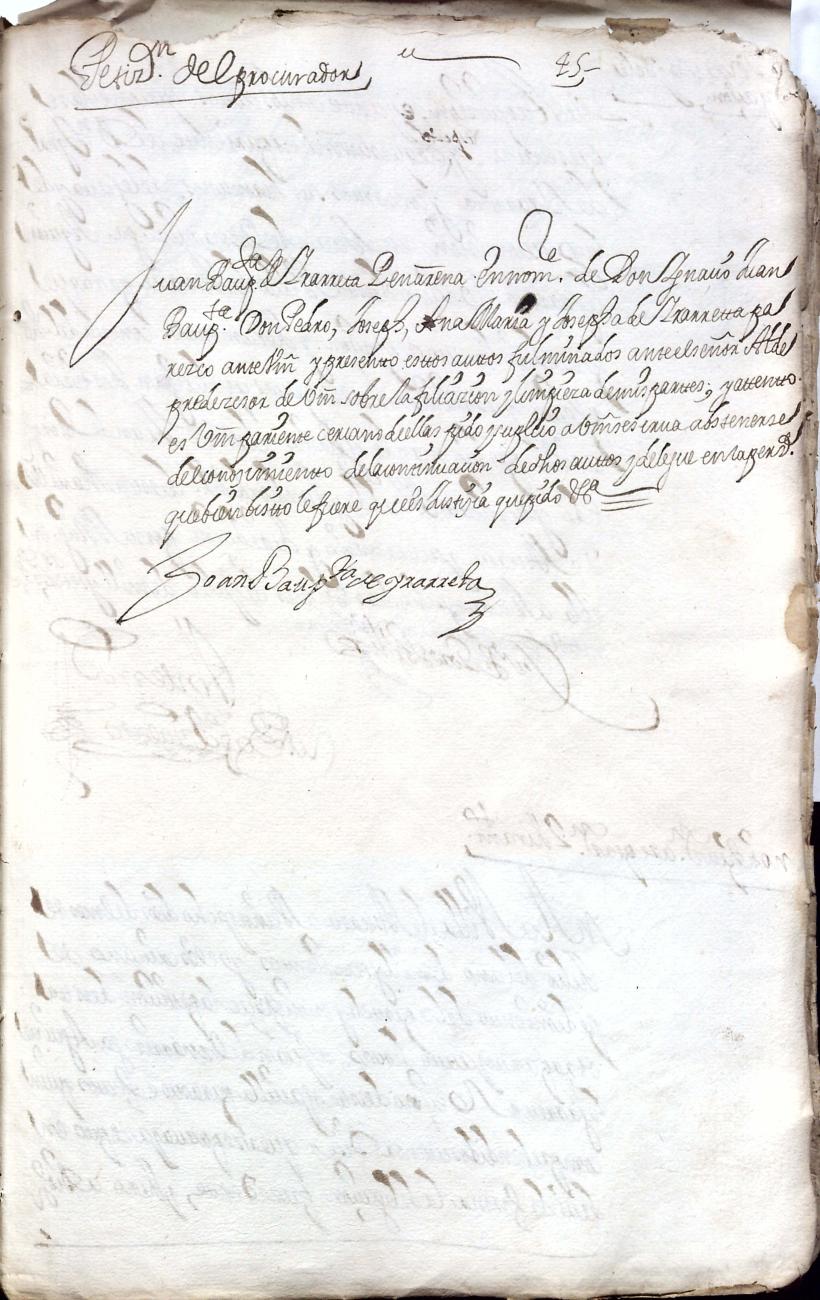 Petizn. del procurador 45
Juan Bapta. de Yrarreta Penarena En nome. de Don Ygnacio Juan
Bapta. Don Pedro, Joseph, Ana Maria y Josepha de Yrarretta pa
rezco ante Vm y presento estos auttos fulminados ante el señor Alde
predezesor de Vm. sobre la filiazion y limpieza de mis partes; y attento
es Vm pariente cercano de ellas pido y suplico a Vm se sirva abstenerse
del conozimientto de la continuazion de dhos auttos y delegue en la persa.
que bien bisto le fuere que es Justizia que pido &a
Joan Bapta de yrarreta